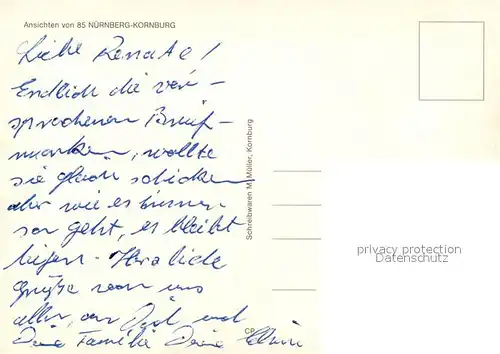 Ansichten von 85 NÜRNBERG-KORNBURG
Liebe Renate!
Endlich die ver-
sprochenen Brief-
marken, wollte
sie gleich schicken
aber wie es immer
so geht, es bleibt
liegen. Herzliche
Grüße von uns
allen, an Dich und
Deine Familie Deine
Schreibwaren M. Müller, Kornburg
privacy protection
Datenschutz